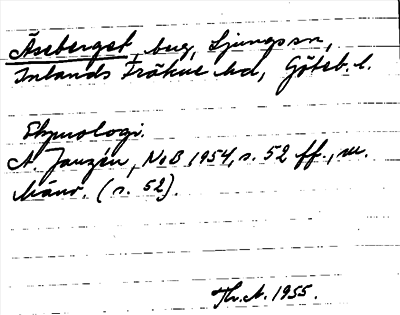 Åseberget, bug, Ljungs sn,
Inlands Fräkne hd, Göteb. l.
Etymologi.
A. Janzén, NoB 1954, s. 52 ff., m.
hänv. (s. 52).
Th. A. 1955.